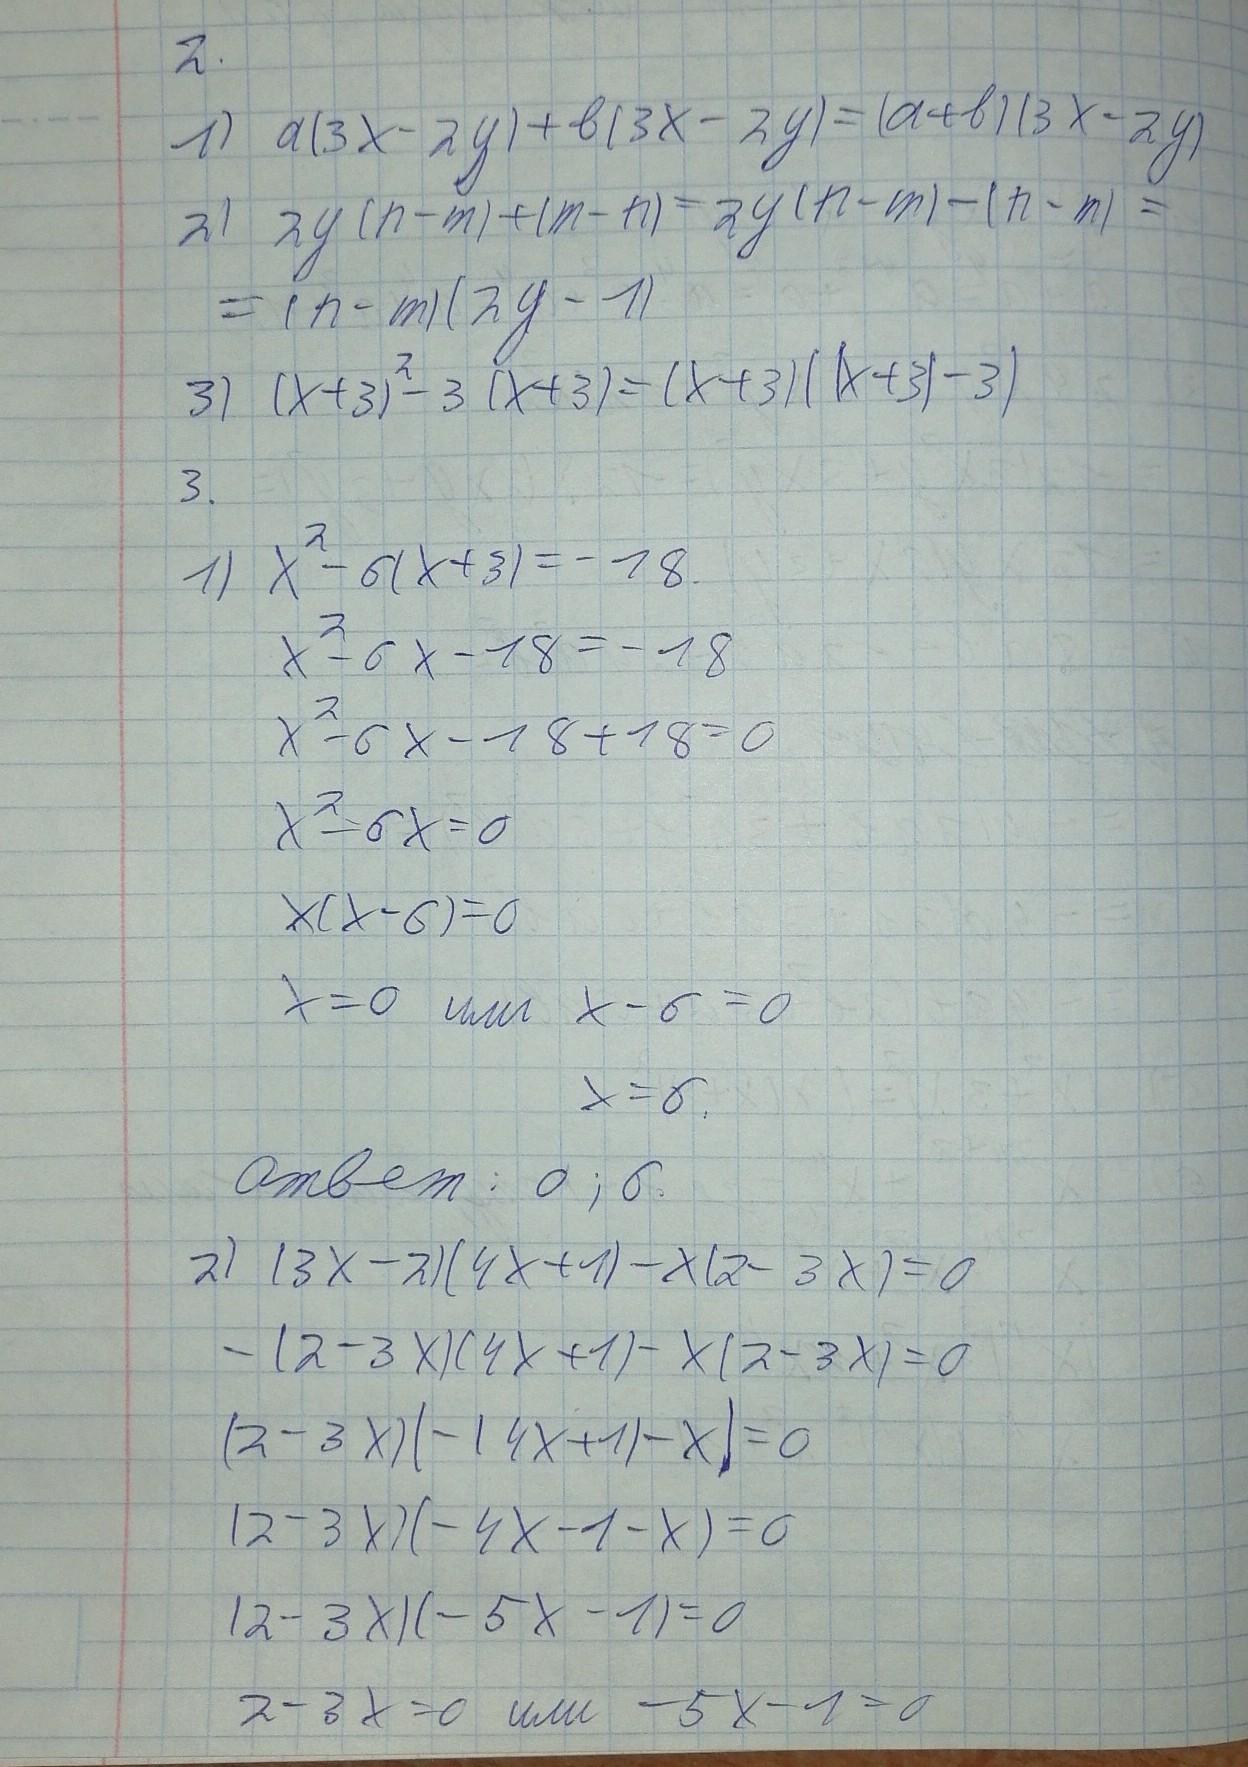 2.
1) a(3x-2y)+b(3x-2y)=(a+b)(3x-2y)
2) 2y(n-m)+(m-n)=2y(n-m)-(n-m)=
=(n-m)(2y-1)
3) (x+3)²-3(x+3)=(x+3)((x+3)-3)
3.
1) x²-6(x+3)=-18.
x²-6x-18=-18
x²-6x-18+18=0
x²-6x=0
x(x-6)=0
x=0 или x-6=0
x=6.
Ответ: 0; 6.
2) (3x-2)(4x+1)-x(2-3x)=0
-(2-3x)(4x+1)-x(2-3x)=0
(2-3x)(-(4x+1)-x)=0
(2-3x)(-4x-1-x)=0
(2-3x)(-5x-1)=0
2-3x=0 или -5x-1=0